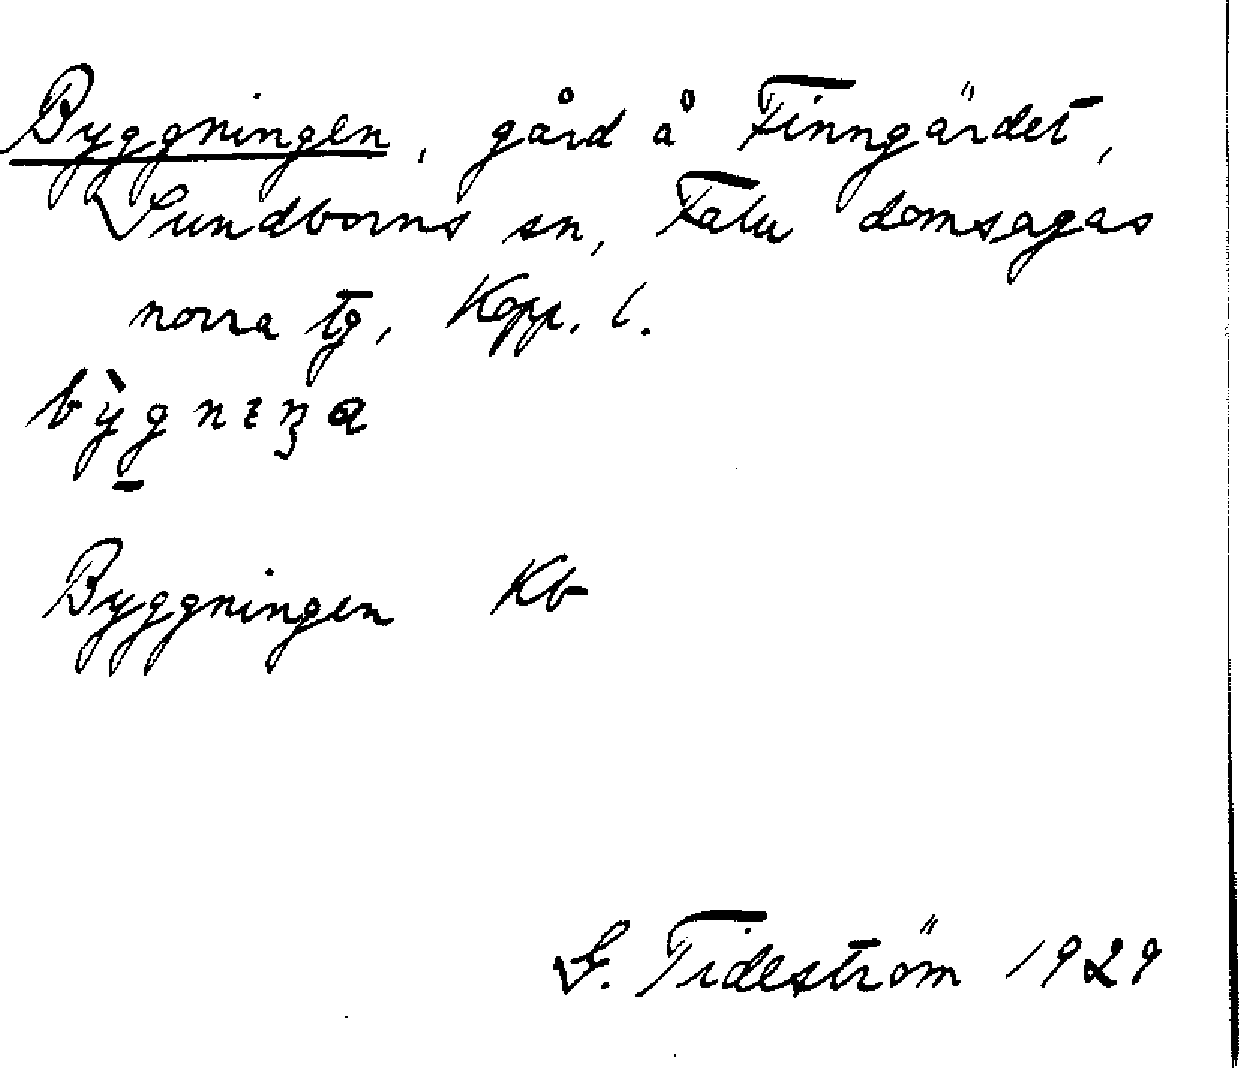 Byggningen, gård å Finngärdet,
Sundborns sn, Falu domsagas
norra tg, Kopp. l.
Byggningen Kb
G. Tideström 1929